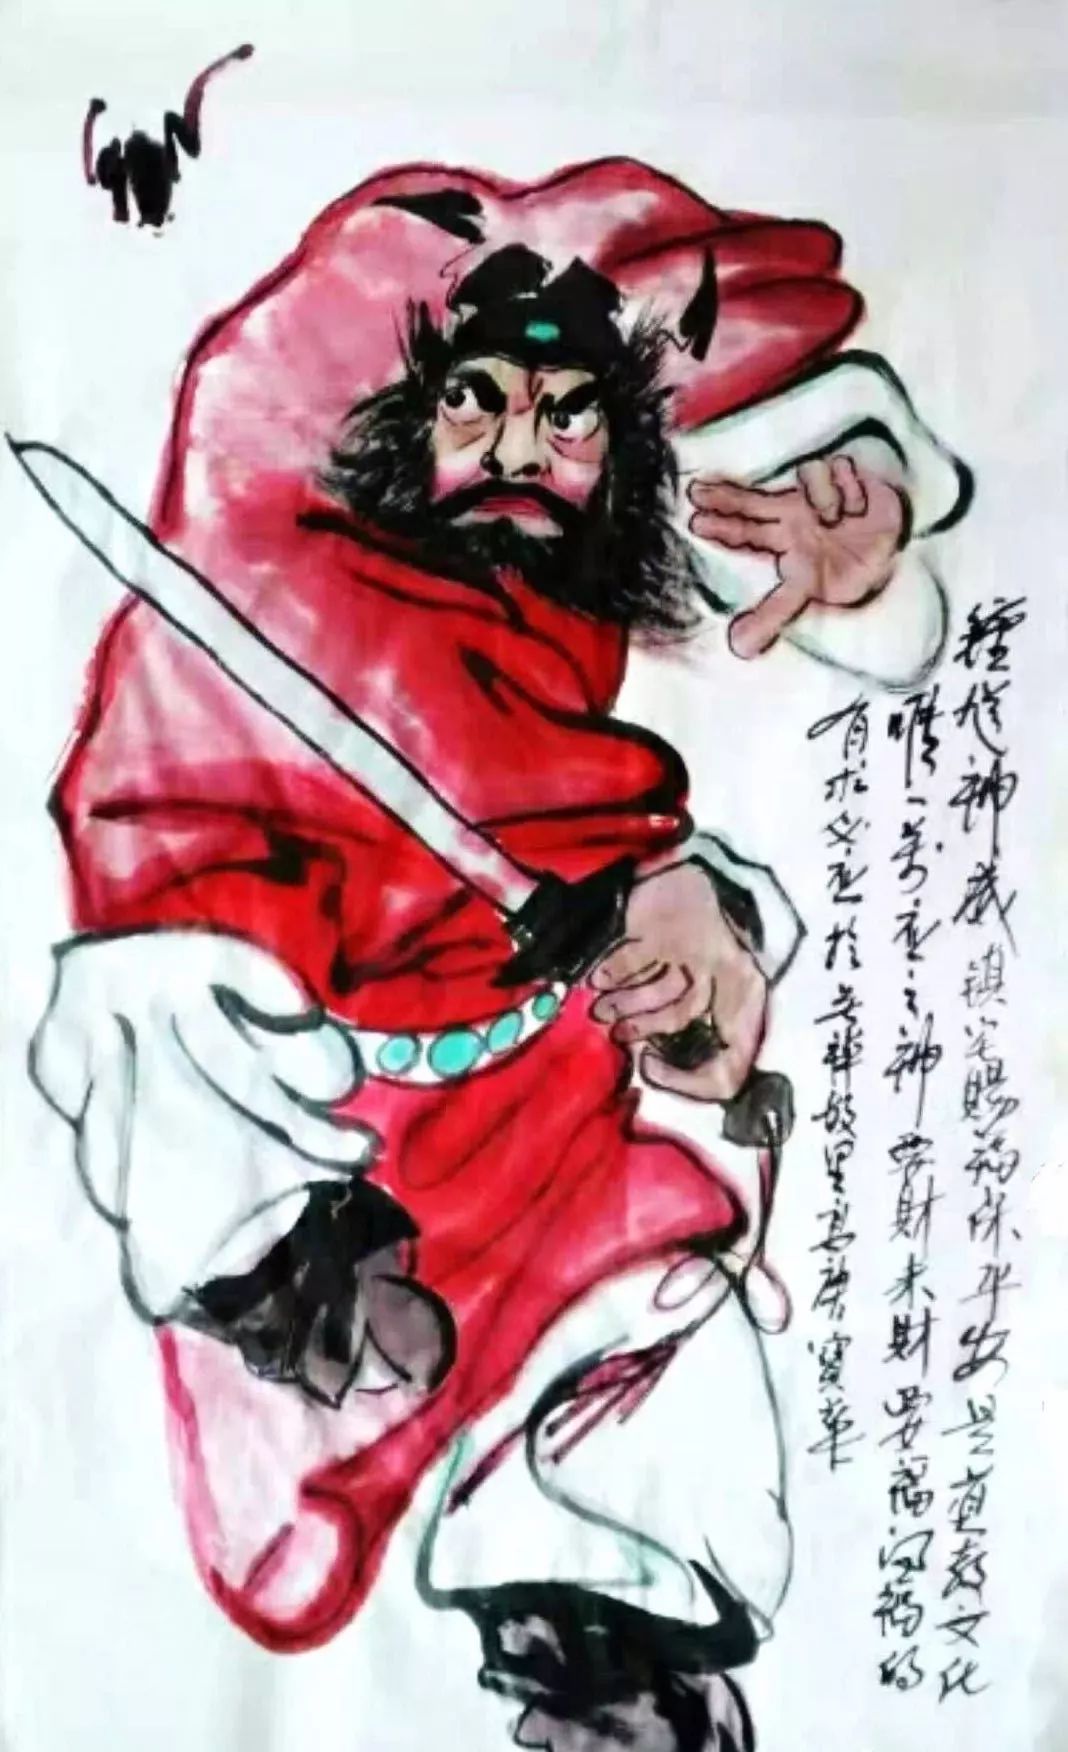 鍾馗神威镇宅賜福保平安是道教文化
唯一萬应之神要財来財要福得福的
有求必应於安祥故里高唐寶華